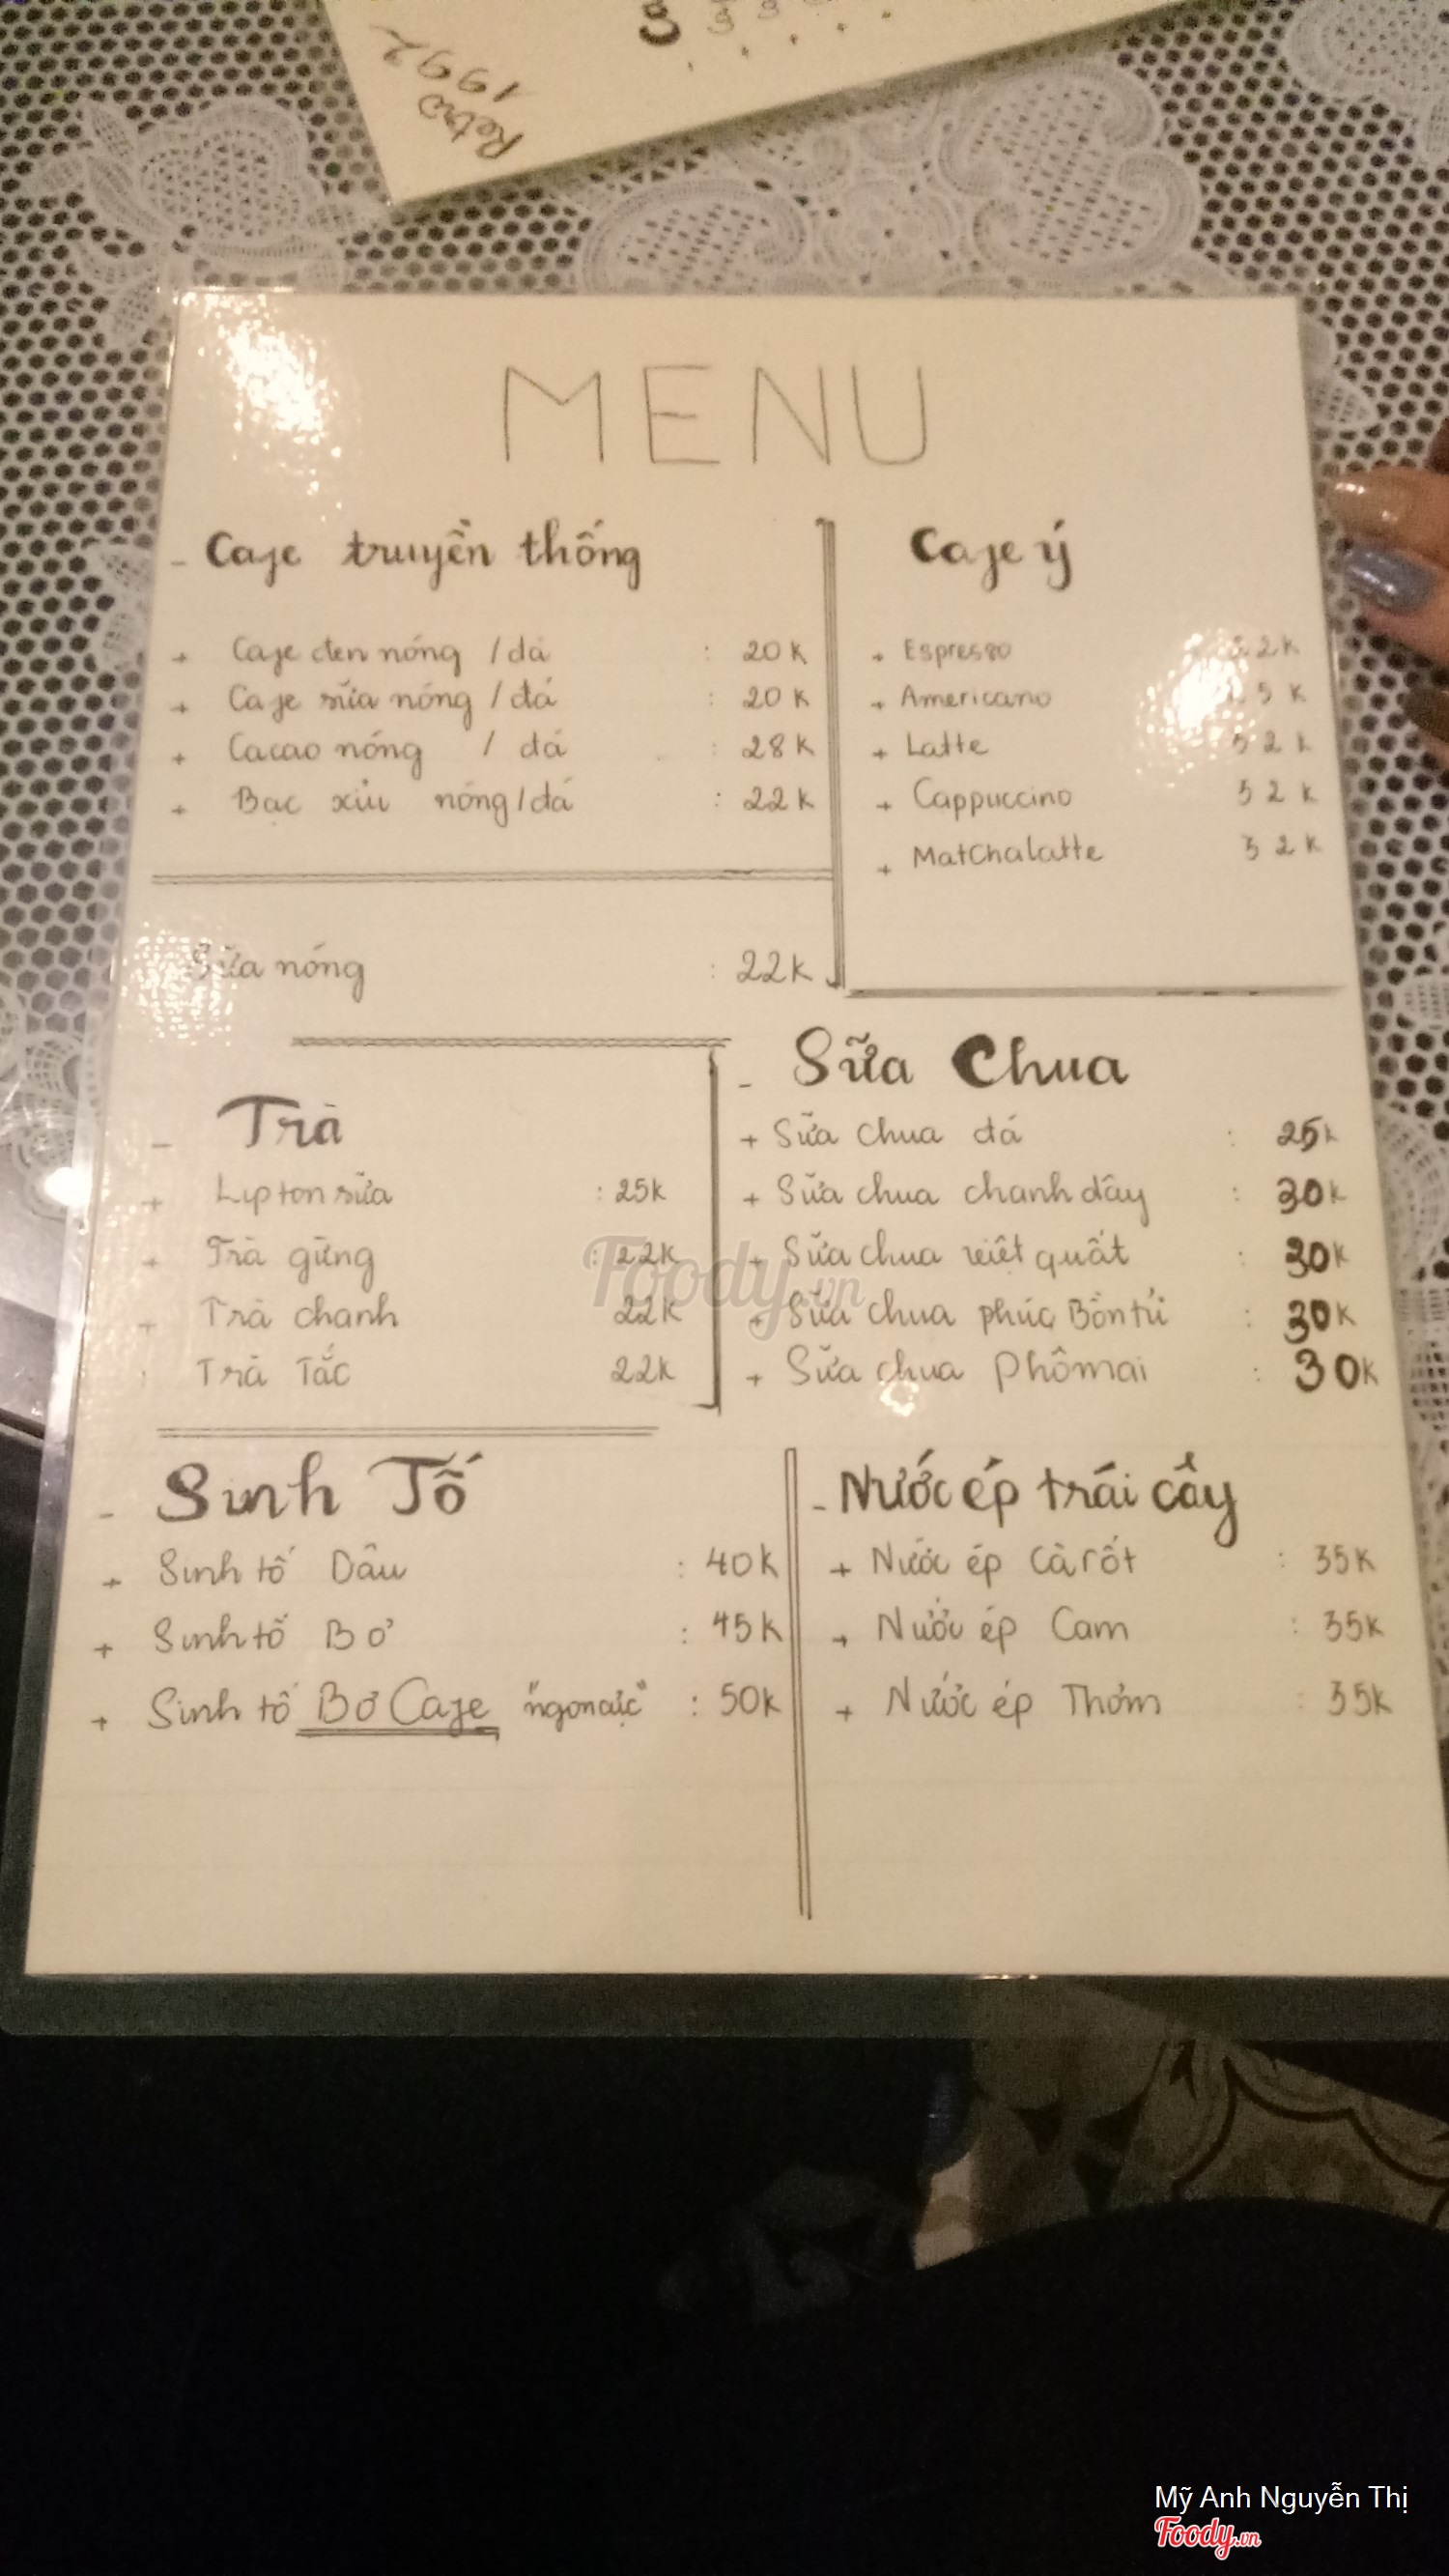 Retro
1992
MENU
- Cafe truyền thống
+ Cafe đen nóng / đá : 20K
+ Cafe sữa nóng / đá : 20K
+ Cacao nóng / đá : 28K
+ Bạc xỉu nóng / đá : 22K
Sữa nóng : 22K
Cafe ý
+ Espresso
+ Americano
+ Latte
+ Cappuccino
+ MatChalatte
- Trà
+ Lipton sữa : 25K
+ Trà gừng : 22K
+ Trà chanh 22K
Trà Tắc 22K
- Sữa Chua
+ Sữa chua đá : 25K
+ Sữa chua chanh dây : 30K
+ Sữa chua việt quất : 30K
+ Sữa chua phúc Bồn tử : 30K
+ Sữa chua Phômai : 30K
- Sinh Tố
+ Sinh tố Dâu : 40K
+ Sinh tố Bơ : 45K
+ Sinh tố Bơ Cafe "ngon cực" : 50K
- Nước ép trái cây
+ Nước ép Cà rốt : 35K
+ Nước ép Cam : 35K
+ Nước ép Thơm : 35K
Foody.vn
Mỹ Anh Nguyễn Thị
Foody.vn